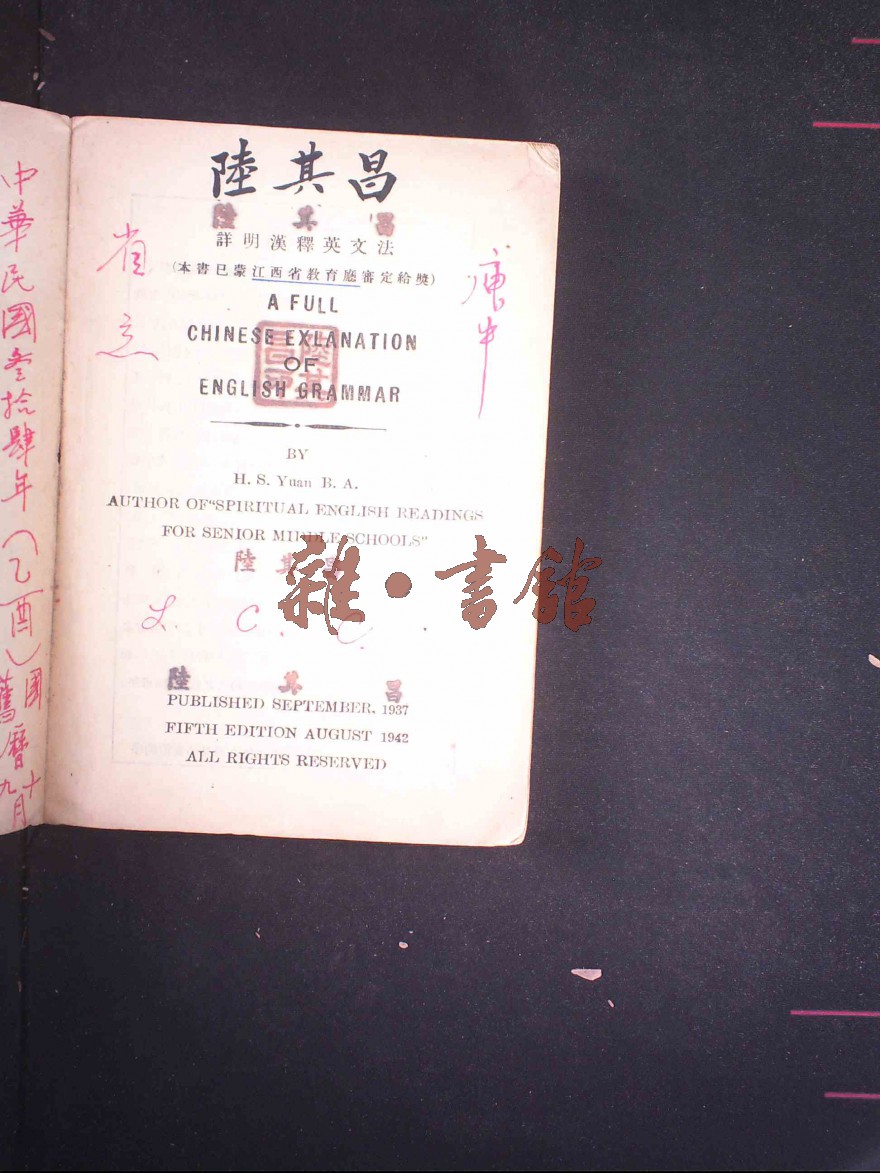 中華民國叁拾肆年（乙酉）國
舊曆九月十
陸其昌
陸其昌
詳明漢釋英文法
(本書已蒙江西省教育廳審定給獎)
A FULL
CHINESE EXLANATION
OF
ENGLISH GRAMMAR
BY
H. S. Yuan B. A.
AUTHOR OF "SPIRITUAL ENGLISH READINGS
FOR SENIOR MIDDLE SCHOOLS"
陸其昌
雜·書館
L. C. C.
陸其昌
PUBLISHED SEPTEMBER, 1937
FIFTH EDITION AUGUST 1942
ALL RIGHTS RESERVED